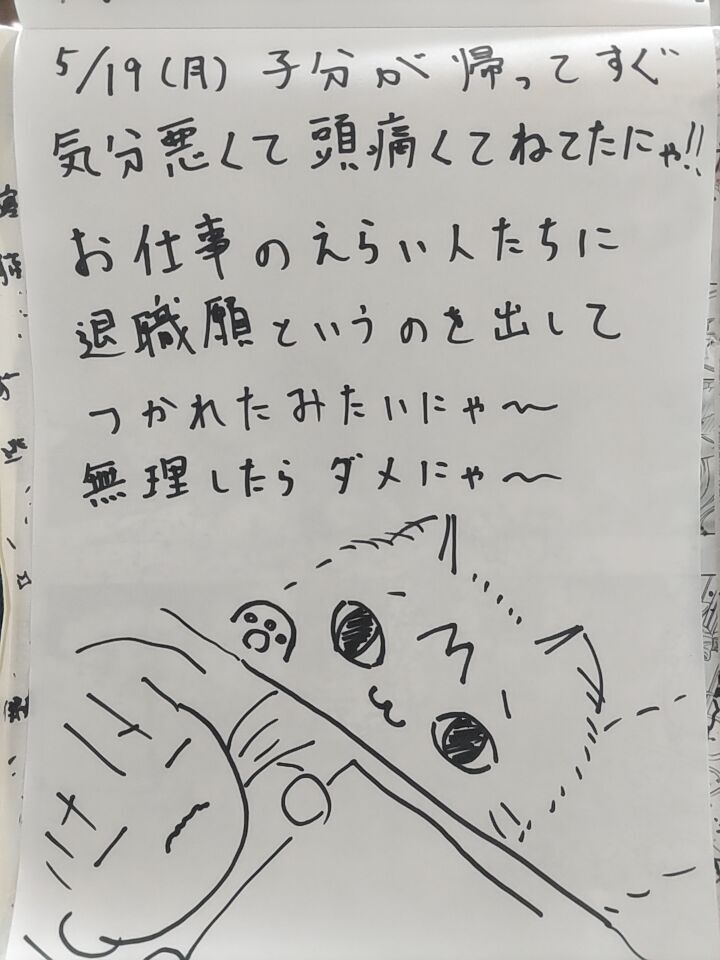 5/19(月) 子分が帰ってすぐ
気分悪くて頭痛くてねてたにゃ!!
お仕事のえらい人たちに
退職願というのを出して
つかれたみたいにゃ〜
無理したらダメにゃ〜